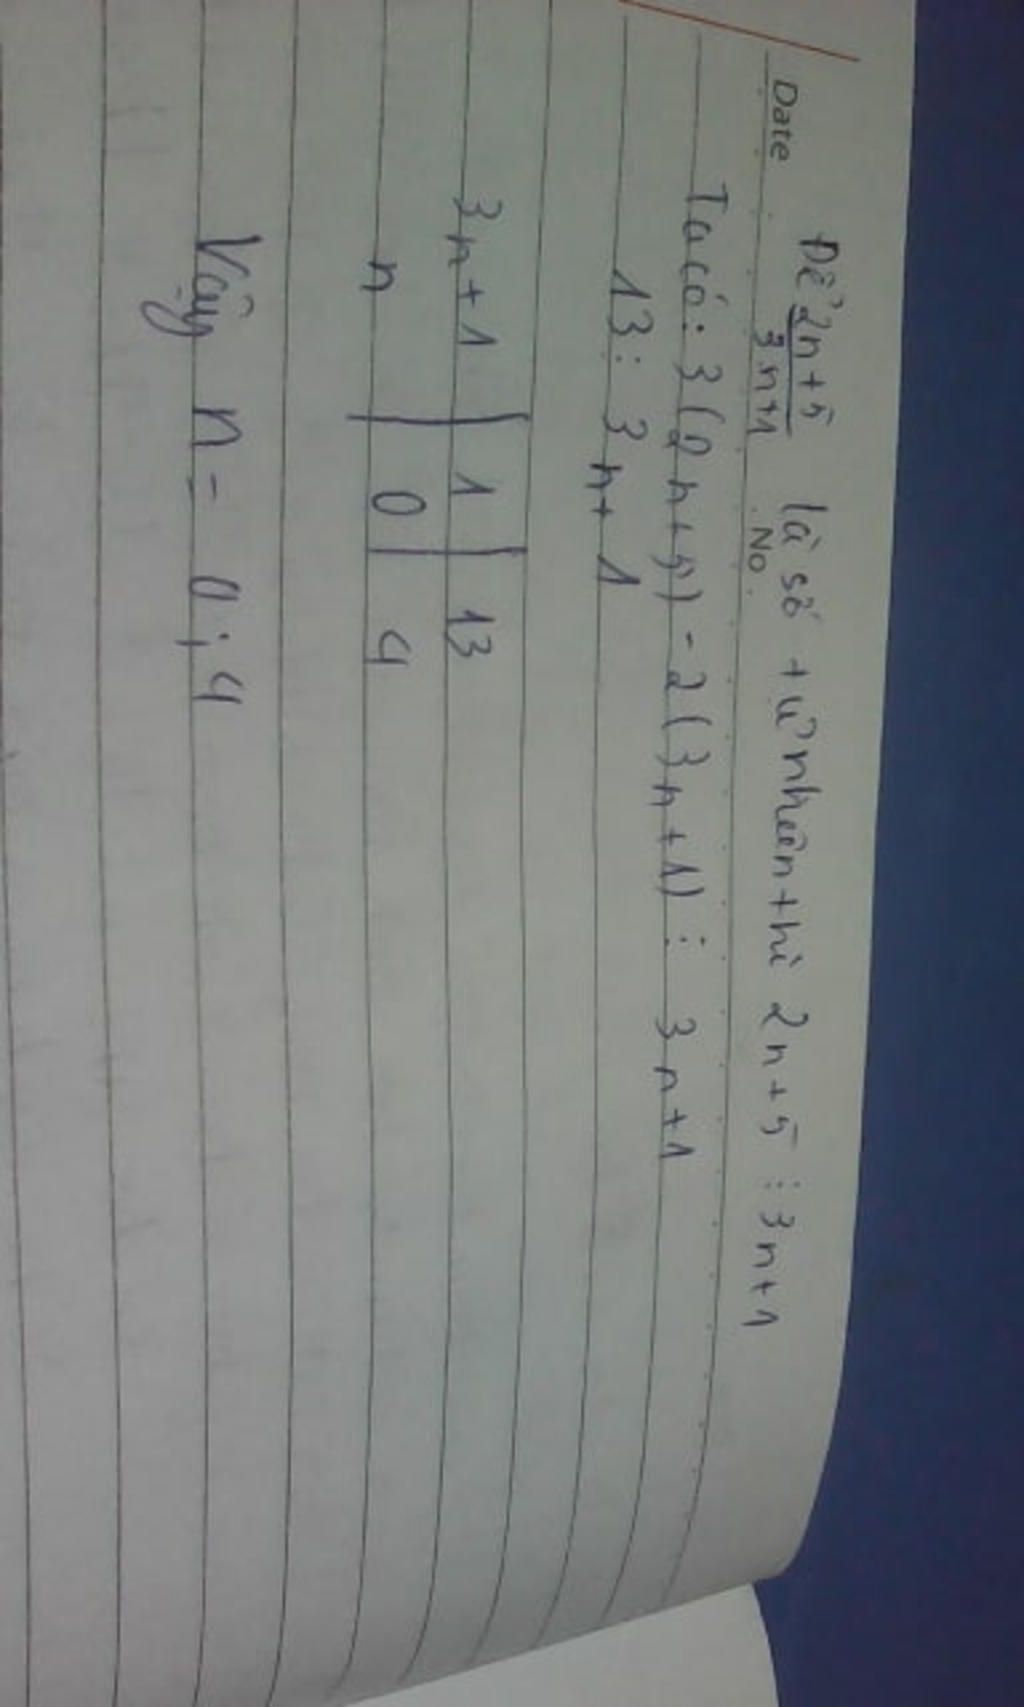 Date No.
Để 2n+5/3n+1 là số tự nhiên thì 2n+5 ⋮ 3n+1
Ta có: 3(2n+5)-2(3n+1) ⋮ 3n+1
13 ⋮ 3n+1
3n+1 | 1 | 13
n | 0 | 4
Vậy n = 0; 4